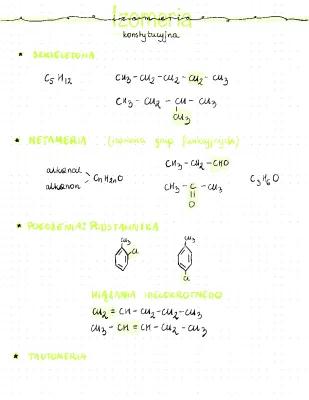 Izomeria
konstytucyjna
* SZKIELETOWA
C₅H₁₂ CH₃-CH₂-CH₂-CH₂-CH₃
CH₃-CH₂-CH-CH₃
CH₃
* METAMERIA (izomeria grup funkcyjnych)
alkanal
alkanon > CnH2nO
CH₃-CH₂-CHO
CH₃-C-CH₃ C₃H₆O
O
* POŁOŻENIA PODSTAWNIKA
CH₃ Cl
CH₃
Cl
WIĄZANIA WIELOKROTNEGO
CH₂=CH-CH₂-CH₂-CH₃
CH₃-CH=CH-CH₂-CH₃
* TAUTOMERIA